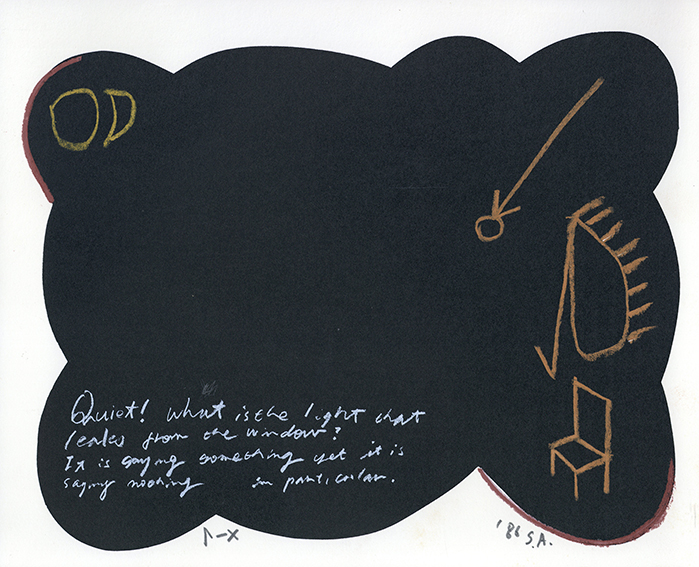 OD
Quiet! What is the light that
leaks from the window?
It is saying something yet it is
saying nothing in particular.
'86 S.A.